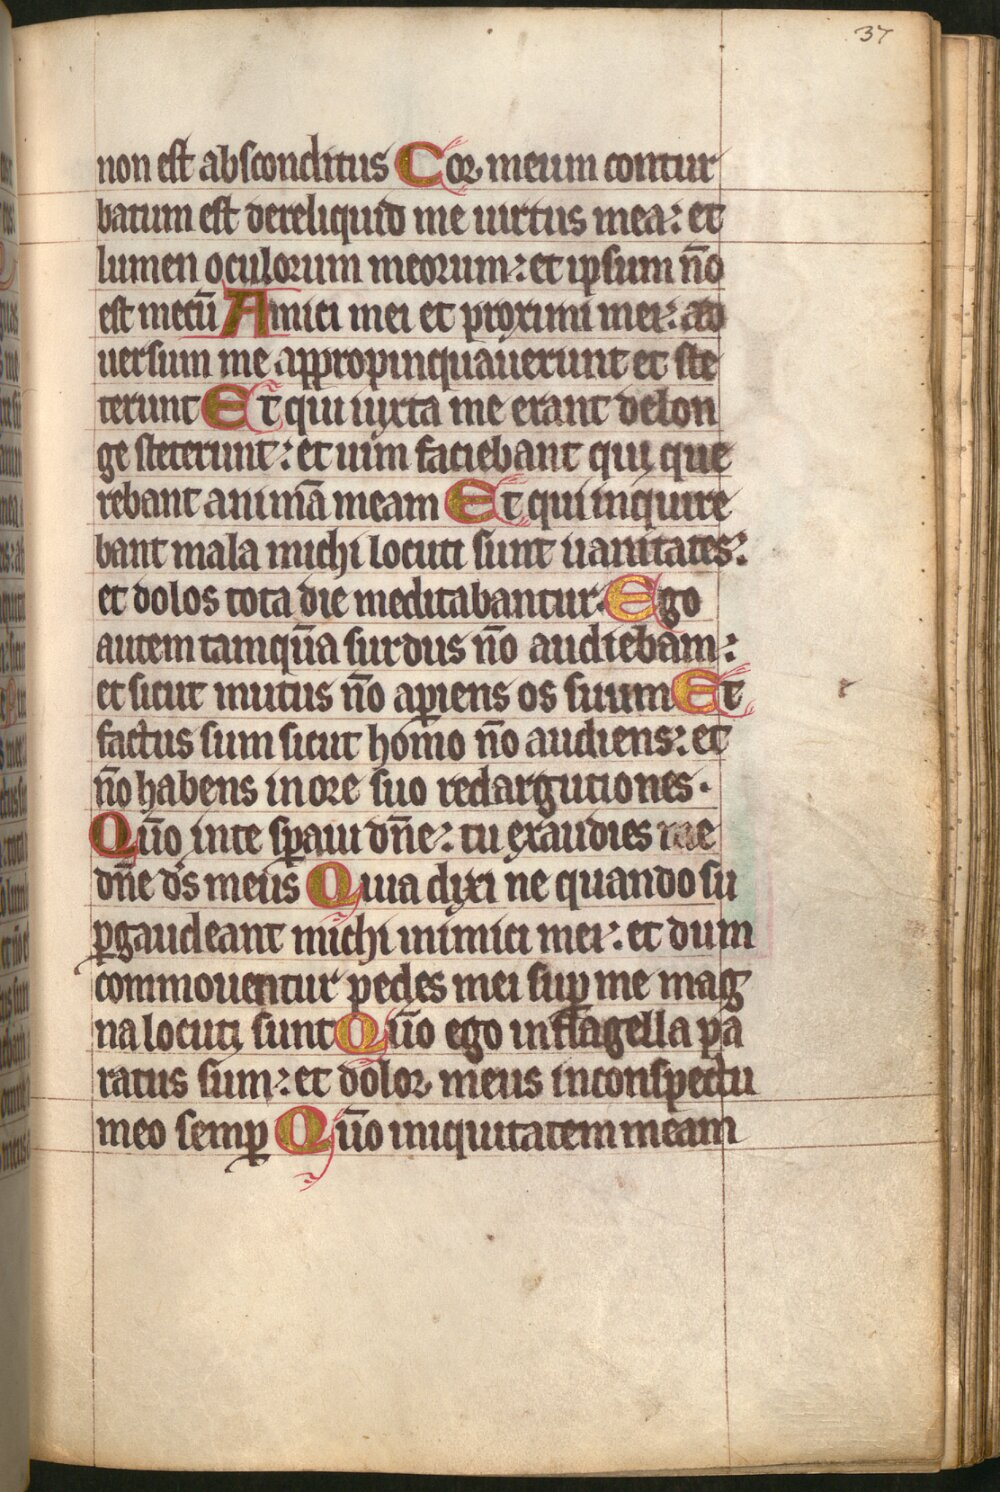 37
non est absconditus Cor meum contur
batum est dereliquid me uirtus mea: et
lumen oculorum meorum: et ipsum nõ
est mecũ Amici mei et proximi mei: ad
uersum me appropinquauerunt et ste
terunt Et qui iuxta me erant delon
ge steterunt: et uim faciebant qui que
rebant animã meam Et qui inquire
bant mala michi locuti sunt uanitates:
et dolos tota die meditabantur. Ego
autem tamquã surdus nõ audiebam:
et sicut mutus nõ apiens os suum Et
factus sum sicut homo nõ audiens: et
nõ habens in ore suo redargutiones.
Qũo in te sꝑaui dñe: tu exaudies me
dñe ds meus Quia dixi ne quando su
ꝑgaudeant michi inimici mei: et dum
commouentur pedes mei suꝑ me mag
na locuti sunt Qũo ego in flagella pa
ratus sum: et dolor meus inconspectu
meo semꝑ Qũo iniquitatem meam